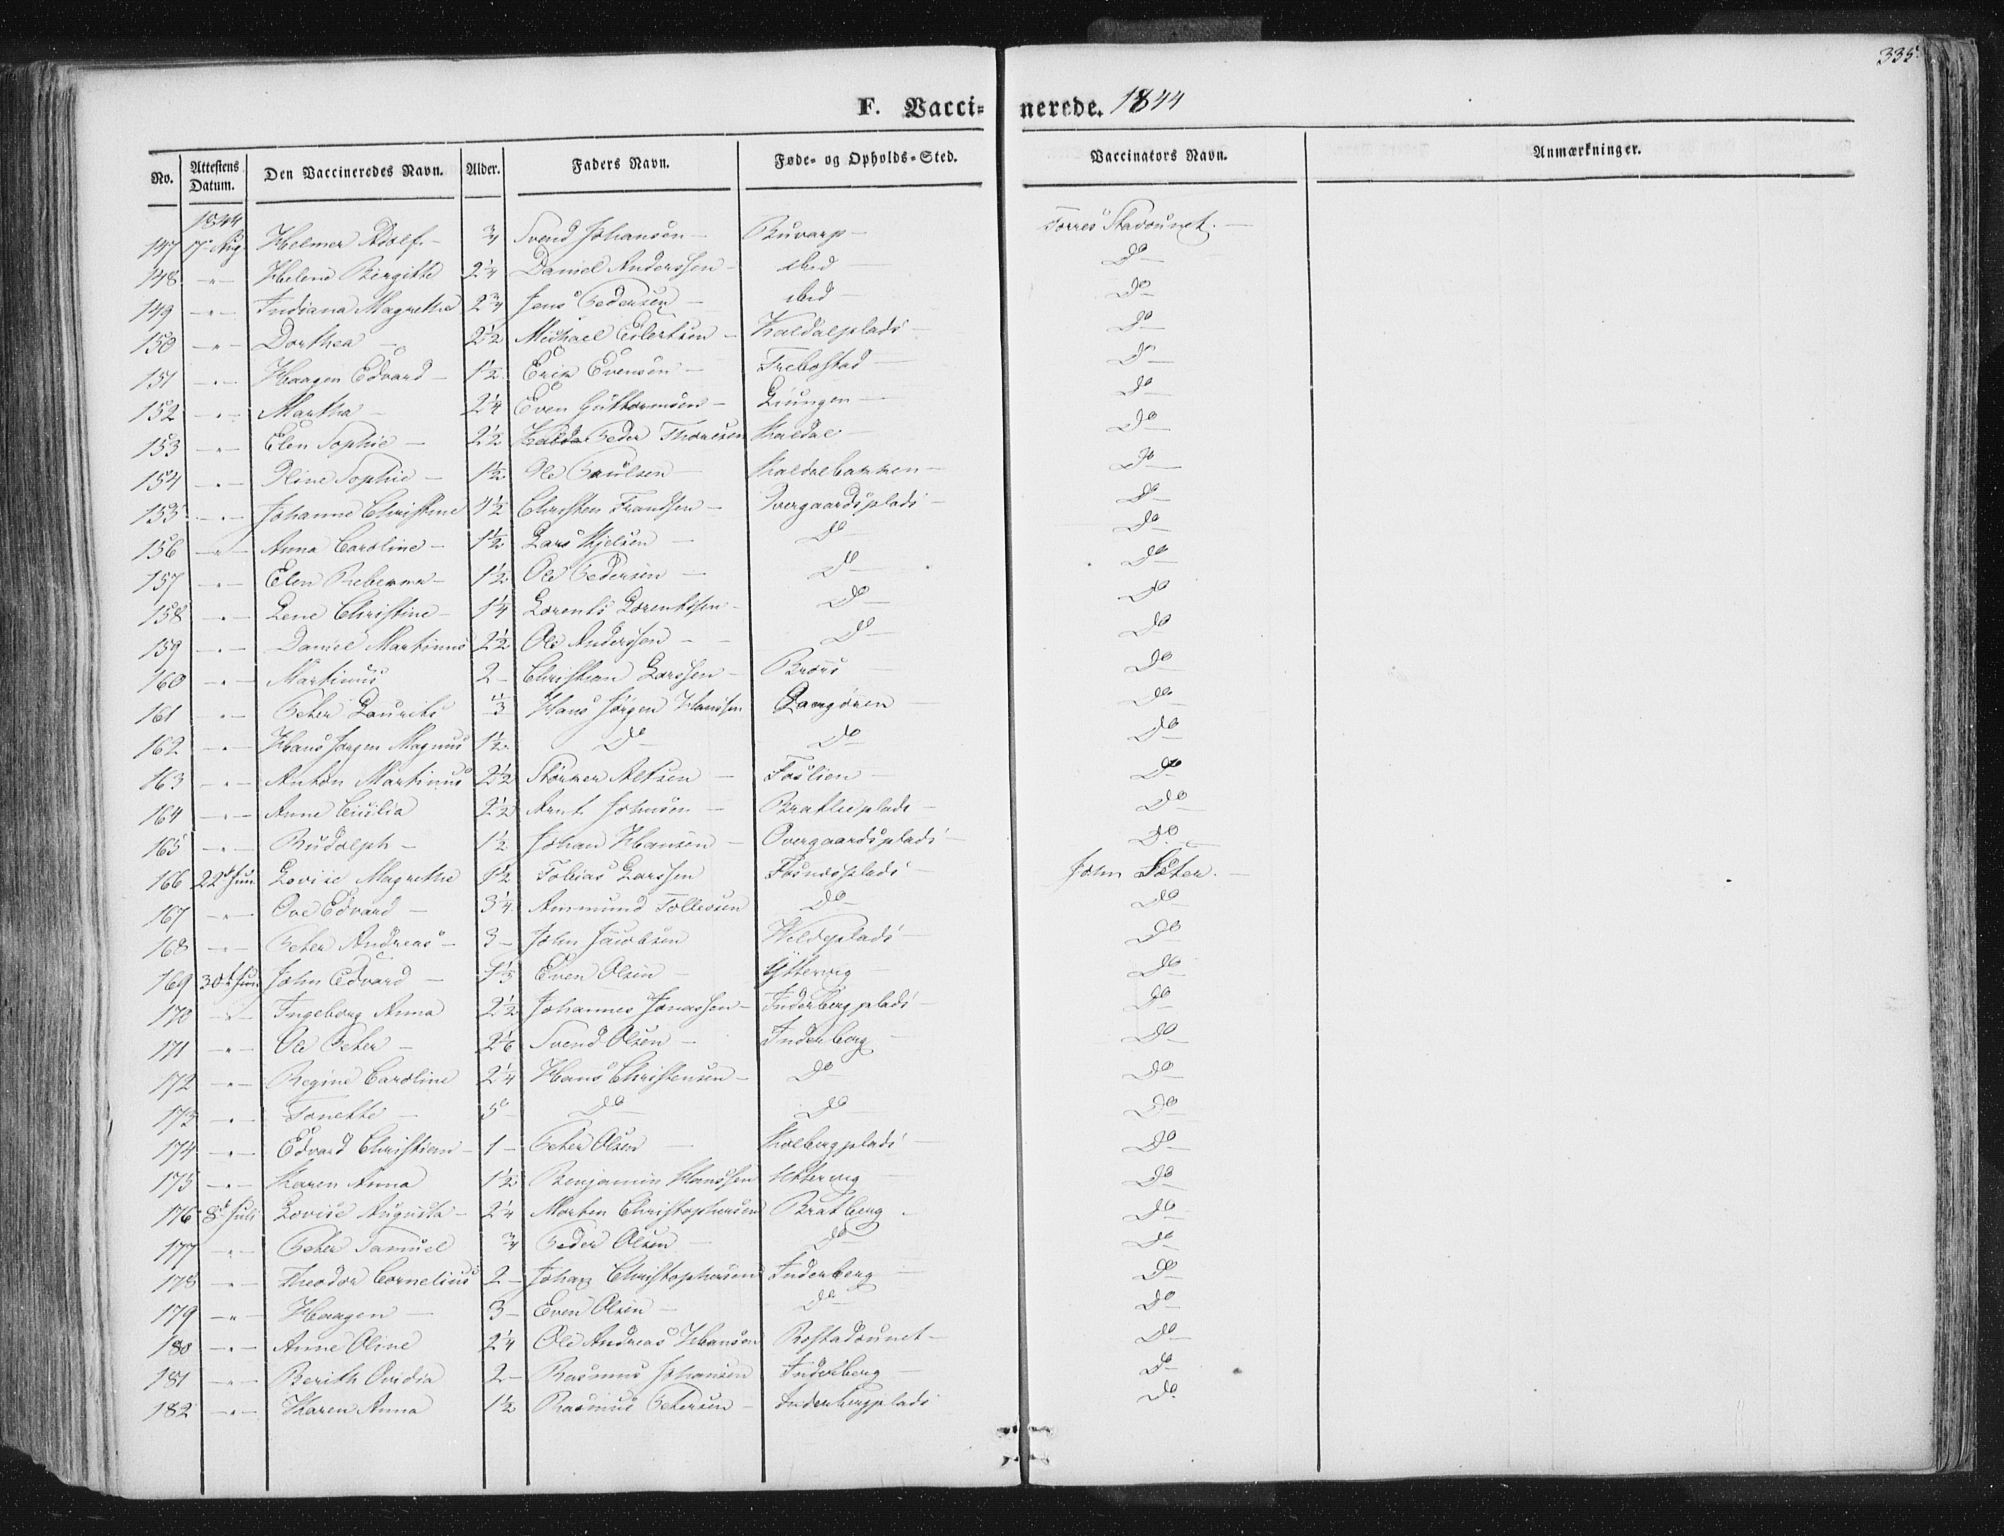 335.
F. Vaccinerede. 1844
No. | Attestens Datum. | Den Vaccineredes Navn. | Alder. | Faders Navn. | Føde- og Opholds-Sted. | Vaccinators Navn. | Anmærkninger.
1844
147 | 17 Aug | Helmer Adolf | 3/4 | Svend Johansen | Buvarp | Torres Stadsunet.
148 | " | Helene Birgitte | 2 1/4 | Daniel Anderssen | ibid | Do
149 | " | Indiana Magrethe | 2 3/4 | Jens Pedersen | ibid | Do
150 | " | Dorthea | 2 1/2 | Michael Eilertsen | Kaldalplads | Do
151 | " | Haagen Edvard | 1 1/2 | Erik Evensen | Trebostad | Do
152 | " | Martha | 2 1/4 | Even Guttormsen | Liungen | Do
153 | " | Elen Sophie | 2 1/2 | Peder Thoresen | Kaldal | Do
154 | " | Oline Sophie | 1 1/2 | Ole Paulsen | Kaldalbakken | Do
155 | " | Johanne Christine | 4 1/2 | Christen Frandsen | Overgaardsplads | Do
156 | " | Anna Caroline | 1 1/2 | Lars Kjelsen | Do | Do
157 | " | Elen Rebekka | 1 1/2 | Ole Pedersen | Do | Do
158 | " | Lene Christine | 1 1/4 | Lorents Lorentssen | Do | Do
159 | " | Daniel Martinus | 2 1/2 | Ole Anderssen | Do | Do
160 | " | Martinus | 2 | Christian Larssen | Brørs | Do
161 | " | Peter Laurits | 1/3 | Hans Jørgen Hanssen | Langøren | Do
162 | " | Hans Jørgen Magnus | 1 1/2 | Do | Do | Do
163 | " | Anton Martinus | 2 1/2 | Størker Altsen | Foslien | Do
164 | " | Anne Cicilia | 2 1/2 | Arnt Johnsen | Bratlieplads | Do
165 | " | Rudolph | 1 1/2 | Johan Hansen | Overgaardsplads | Do
166 | 22 Juni | Lovise Magrethe | 1 1/2 | Tobias Larssen | Fosnesplads | John Sæter.
167 | " | Ove Edvard | 3 1/4 | Ammund Tollevsen | Do | Do
168 | " | Peter Andreas | 3 | John Jacobsen | Hildeplads | Do
169 | 30 Juni | John Edvard | 1 1/3 | Even Olsen | Yttervig | Do
170 | " | Ingeborg Anna | 2 1/2 | Johannes Jonassen | Inderbergplads | Do
171 | " | Ole Peter | 2 1/6 | Svend Olsen | Inderberg | Do
172 | " | Regine Caroline | 2 1/4 | Hans Christensen | Do | Do
173 | " | Tonette | 5 | Do | Do | Do
174 | " | Edvard Christian | 1 | Peter Olsen | Kolbergplads | Do
175 | " | Karen Anna | 1 1/2 | Benjamin Hanssen | Yttervig | Do
176 | 8 Juli | Lovise Augusta | 2 1/4 | Morten Christophersen | Bratberg | Do
177 | " | Peter Samuel | 3/4 | Peder Olsen | Do | Do
178 | " | Theodor Cornelius | 2 | Johan Christophersen | Inderberg | Do
179 | " | Haagen | 3 | Even Olsen | Do | Do
180 | " | Anne Oline | 2 1/4 | Ole Andreas Hansen | Rostadsunet | Do
181 | " | Berith Ovidia | 2 | Rasmus Johansen | Inderberg | Do
182 | " | Karen Anna | 1 1/2 | Rasmus Petersen | Inderbergplads | Do